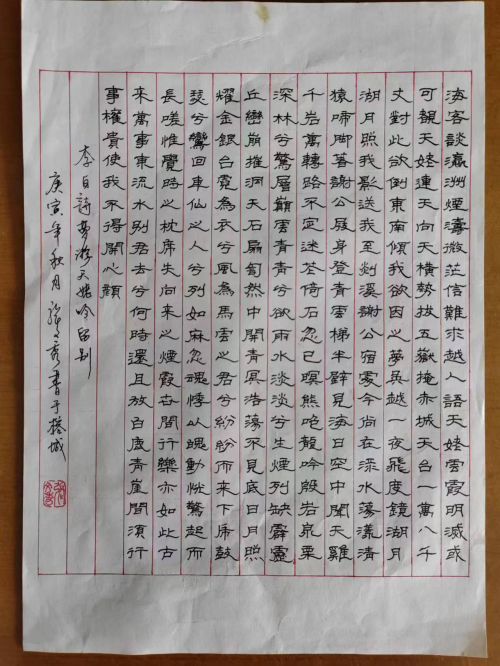 海客談瀛洲煙濤微茫信難求越人語天姥雲霞明滅或
可覩天姥連天向天橫勢拔五嶽掩赤城天台一萬八千
丈對此欲倒東南傾我欲因之夢吳越一夜飛度鏡湖月
湖月照我影送我至剡溪謝公宿處今尚在淥水蕩漾清
猿啼脚著謝公屐身登青雲梯半壁見海日空中聞天雞
千岩萬轉路不定迷花倚石忽已暝熊咆龍吟殷岩泉栗
深林兮驚層巔雲青青兮欲雨水淡淡兮生煙列缺霹靂
丘巒崩摧洞天石扃訇然中開青冥浩蕩不見底日月照
耀金銀台霓為衣兮風為馬雲之君兮紛紛而來下虎鼓
瑟兮鸞回車仙之人兮列如麻忽魂悸以魄動怳驚起而
長嗟惟覺時之枕席失向來之煙霞世間行樂亦如此古
來萬事東流水別君去兮何時還且放白鹿青崖間須行
事權貴使我不得開心顏
李白詩夢游天姥吟留別
庚寅年秋月書于榕城